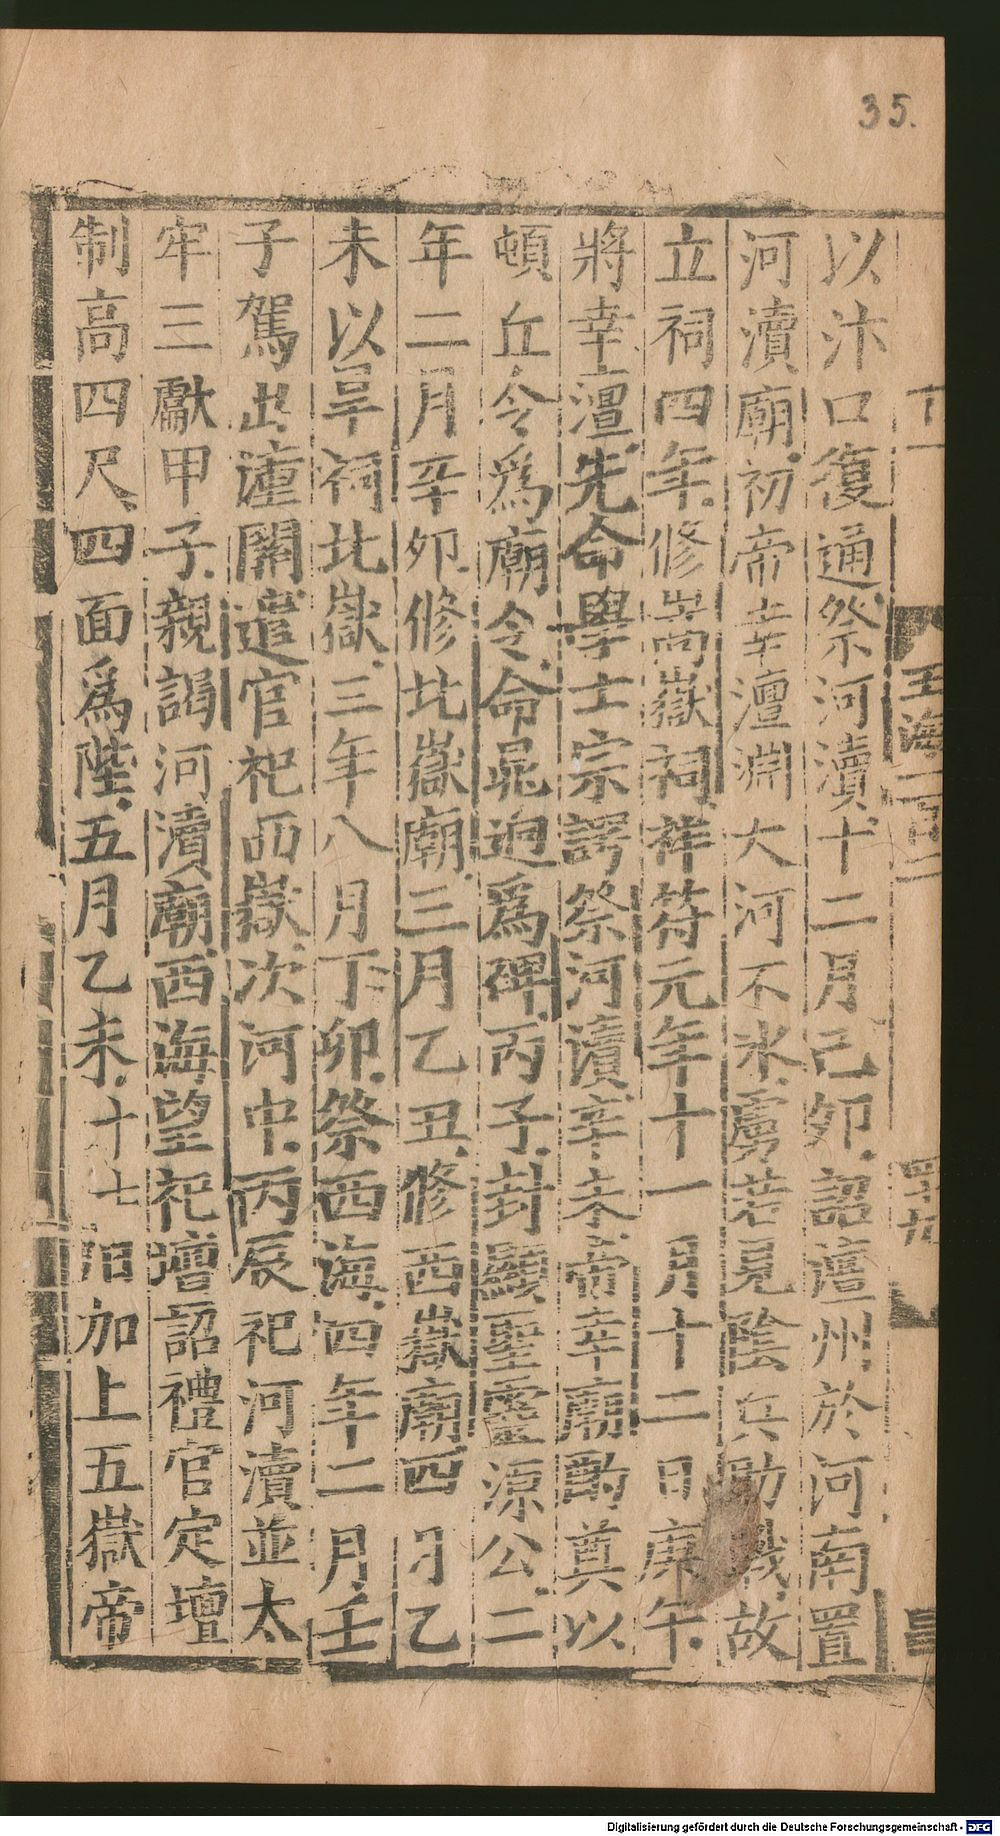 35.
玉海一百二
以汴口復通祭河瀆十二月己卯詔澶州於河南置
河瀆廟初帝幸澶淵大河不冰虜若見陰兵助戰故
立祠四年修嵩嶽祠祥符元年十一月十二日庚午
將幸澶先命學士宗諤祭河瀆辛未帝幸廟酌奠以
頓丘令爲廟令命晁迥爲碑丙子封顯聖靈源公二
年二月辛卯修北嶽廟三月乙丑修西嶽廟四月乙
未以旱祠北嶽三年八月丁卯祭西海四年二月壬
子駕出潼關遣官祀西嶽次河中丙辰祀河瀆並太
牢三獻甲子親謁河瀆廟西海望祀壇詔禮官定壇
制高四尺四面爲陛五月乙未十七日加上五嶽帝
Digitalisierung gefördert durch die Deutsche Forschungsgemeinschaft - DFG